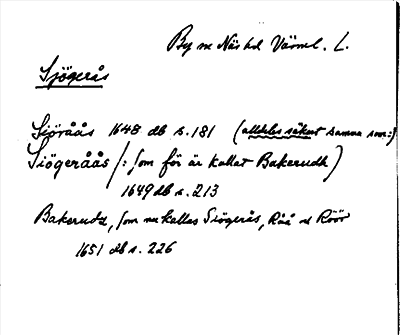 By sn Näs hd Värml. L.
Sjögerås
Siöråås 1648 db s. 181 (alldeles säkert samma som:)
Siögeråås /: som för är kallat Bakerudh)
1649 db s. 213
Bakerudh, som nu kallas Siögerås, Råå o Röör
1651 db s. 226